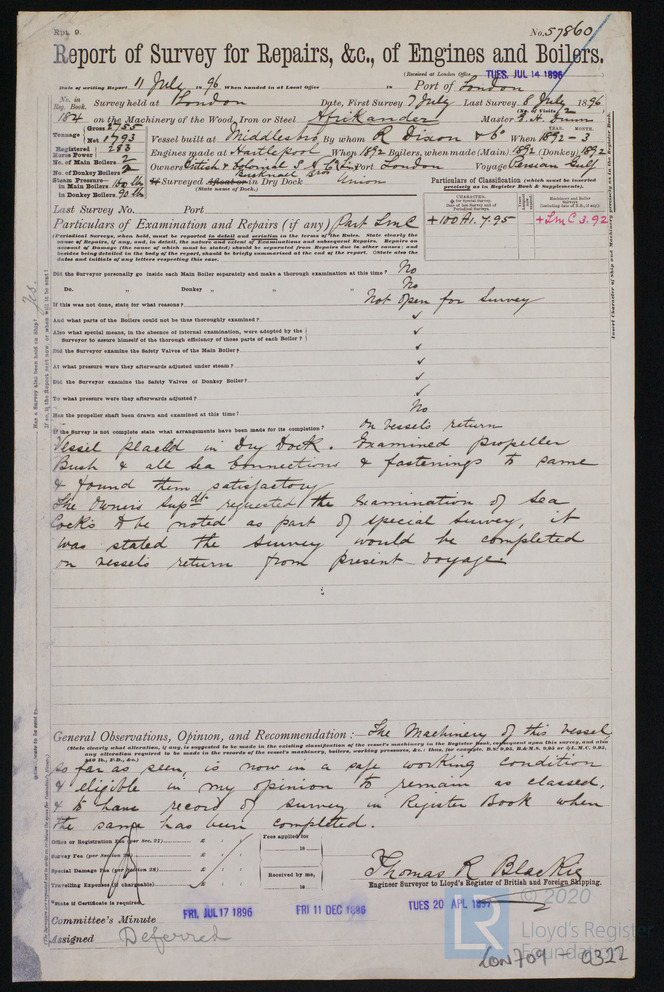 Rpt. 9.
No. 57860
Report of Survey for Repairs, &c., of Engines and Boilers.
(Received at London Office TUES. JUL 14 1896
Date of writing Report 11 July 1896 When handed in at Local Office 18 Port of London
No. in Reg. Book. Survey held at London Date, First Survey 7 July Last Survey 8 July 1896
(No. of Visits 2
1874 on the Machinery of the Wood, Iron or Steel Afrikander Master
Tonnage Gross 2755
Net 1793
Vessel built at Middlesbro By whom R Dixon & Co When 1892 - 3
YEAR. MONTH.
Registered Horse Power 283
Engines made at Hartlepool When 1892 Boilers, when made (Main) 1892 (Donkey) 1892
No. of Main Boilers 2
Owners British & Colonial S. N. Port London Voyage Persian Gulf
No. of Donkey Boilers
Bucknall Bros
Steam Pressure—
in Main Boilers 160 lb
in Donkey Boilers 90 lb
If Surveyed Afloat or in Dry Dock Union
(State name of Dock.)
Particulars of Classification (which must be inserted precisely as in Register Book & Supplements).
Last Survey No. Port
+100A1. 7.95
+LMC 3.92
Particulars of Examination and Repairs (if any) Part LMC
Did the Surveyor personally go inside each Main Boiler separately and make a thorough examination at this time? No
Do. " Donkey " " " No
If this was not done, state for what reasons? Not open for survey
And what parts of the Boilers could not be thus thoroughly examined? ✓
Also what special means, in the absence of internal examination, were adopted by the
Surveyor to assure himself of the thorough efficiency of those parts of each Boiler? ✓
Did the Surveyor examine the Safety Valves of the Main Boiler? ✓
At what pressure were they afterwards adjusted under steam? ✓
Did the Surveyor examine the Safety Valves of Donkey Boiler? ✓
To what pressure were they afterwards adjusted? ✓
Has the propeller shaft been drawn and examined at this time? No
If the Survey is not complete state what arrangements have been made for its completion? On vessels return
Vessel placed in Dry Dock. Examined propeller
Bush & all sea connections & fastenings to same
& found them satisfactory
The Owners Supdt requested the examination of sea
cocks to be noted as part of special survey, it
was stated the survey would be completed
on vessels return from present voyage
General Observations, Opinion, and Recommendation :— The Machinery of this vessel
(State clearly what alteration, if any, is suggested to be made in the existing classification of the vessel's machinery in the Register Book, consequent upon this survey, and also
any alteration required to be made in the records of the vessel's machinery, boilers, working pressures, &c.: thus, for example, B.S. 9.95, B.&M.S. 9.95 or L.M.C. 9.95,
140 lb., F.D., &c.)
so far as seen, is now in a safe working condition
& eligible in my opinion to remain as classed,
& to have record of survey in Register Book when
the same has been completed.
Office or Registration Fee (per Sec. 27) £ : :
Fees applied for 18
Survey Fee (per Section 28) £ : :
Special Damage Fee (per Section 28) £ : :
Received by me, 18
Travelling Expenses (if chargeable) £ : :
Thomas R Blackie
Engineer Surveyor to Lloyd's Register of British and Foreign Shipping.
State if Certificate is required
Committee's Minute
FRI. JUL 17 1896
FRI 11 DEC 1896
TUES 20 APL 1897
Assigned Deferred
© 2020
LR
Lloyd's Register
Foundation
LON709 - 0322